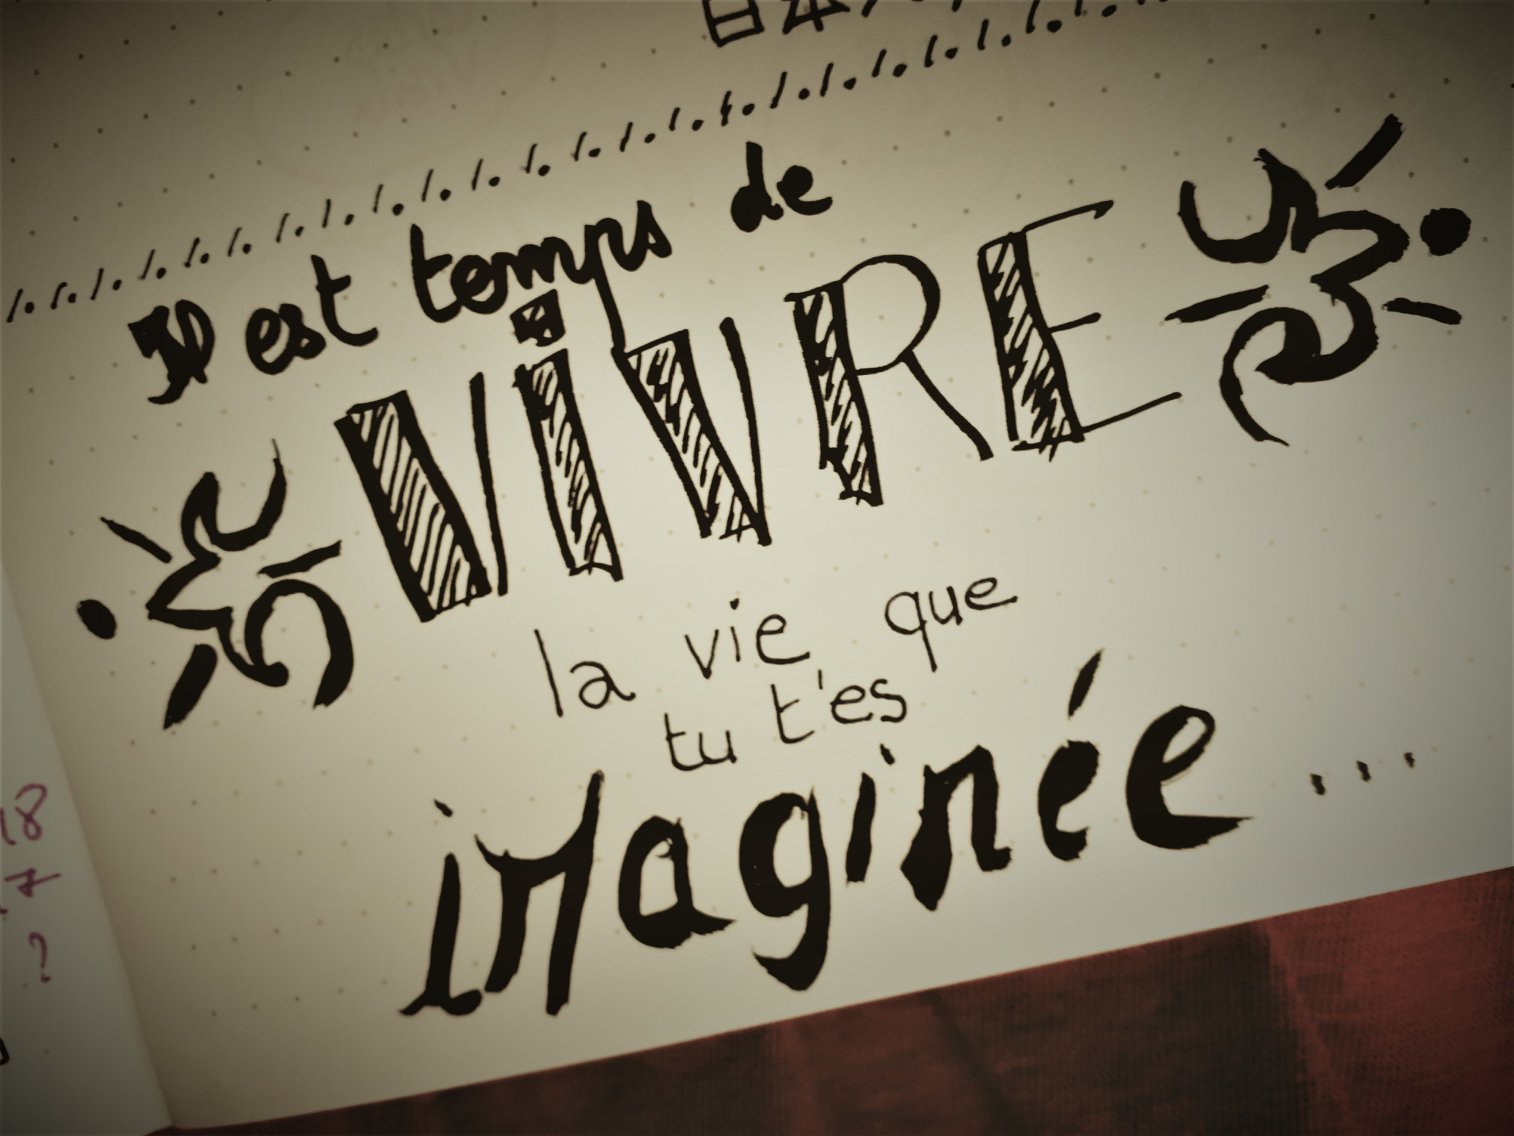 日本
Il est temps de
ViVRE
la vie que
tu t'es
imaginée...
18
7
?